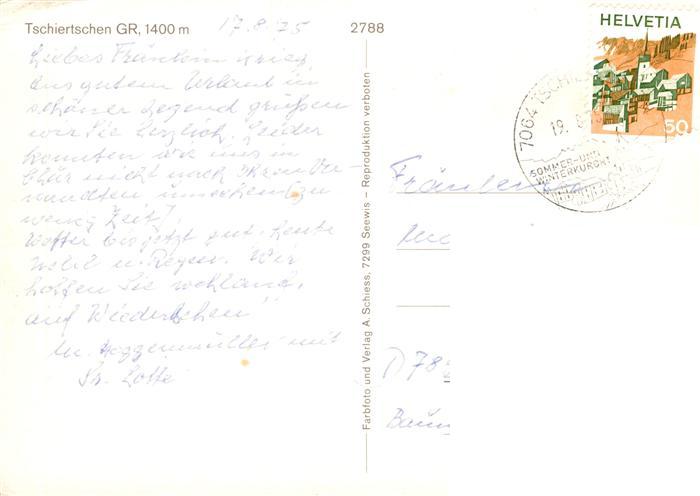 Tschiertschen GR, 1400 m 17.8.75
2788
Liebes Fräulein Krieg,
Aus gutem Urlaub in
schöner Gegend grüßen
wir Sie herzlich. Leider
konnten wir uns in
Chur nicht nach Ihren Ver-
wandten umsehen (zu
wenig Zeit)
Wetter bis jetzt gut. Heute
Nebel u. Regen. Wir
hoffen Sie wohlauf,
auf Wiedersehen
mit
Lotte
Farbfoto und Verlag A. Schiess, 7299 Seewis – Reproduktion verboten
HELVETIA
50
7064 TSCHIE
19. 8.
SOMMER-UND
WINTERKURORT
Fräulein
D 78
Baum